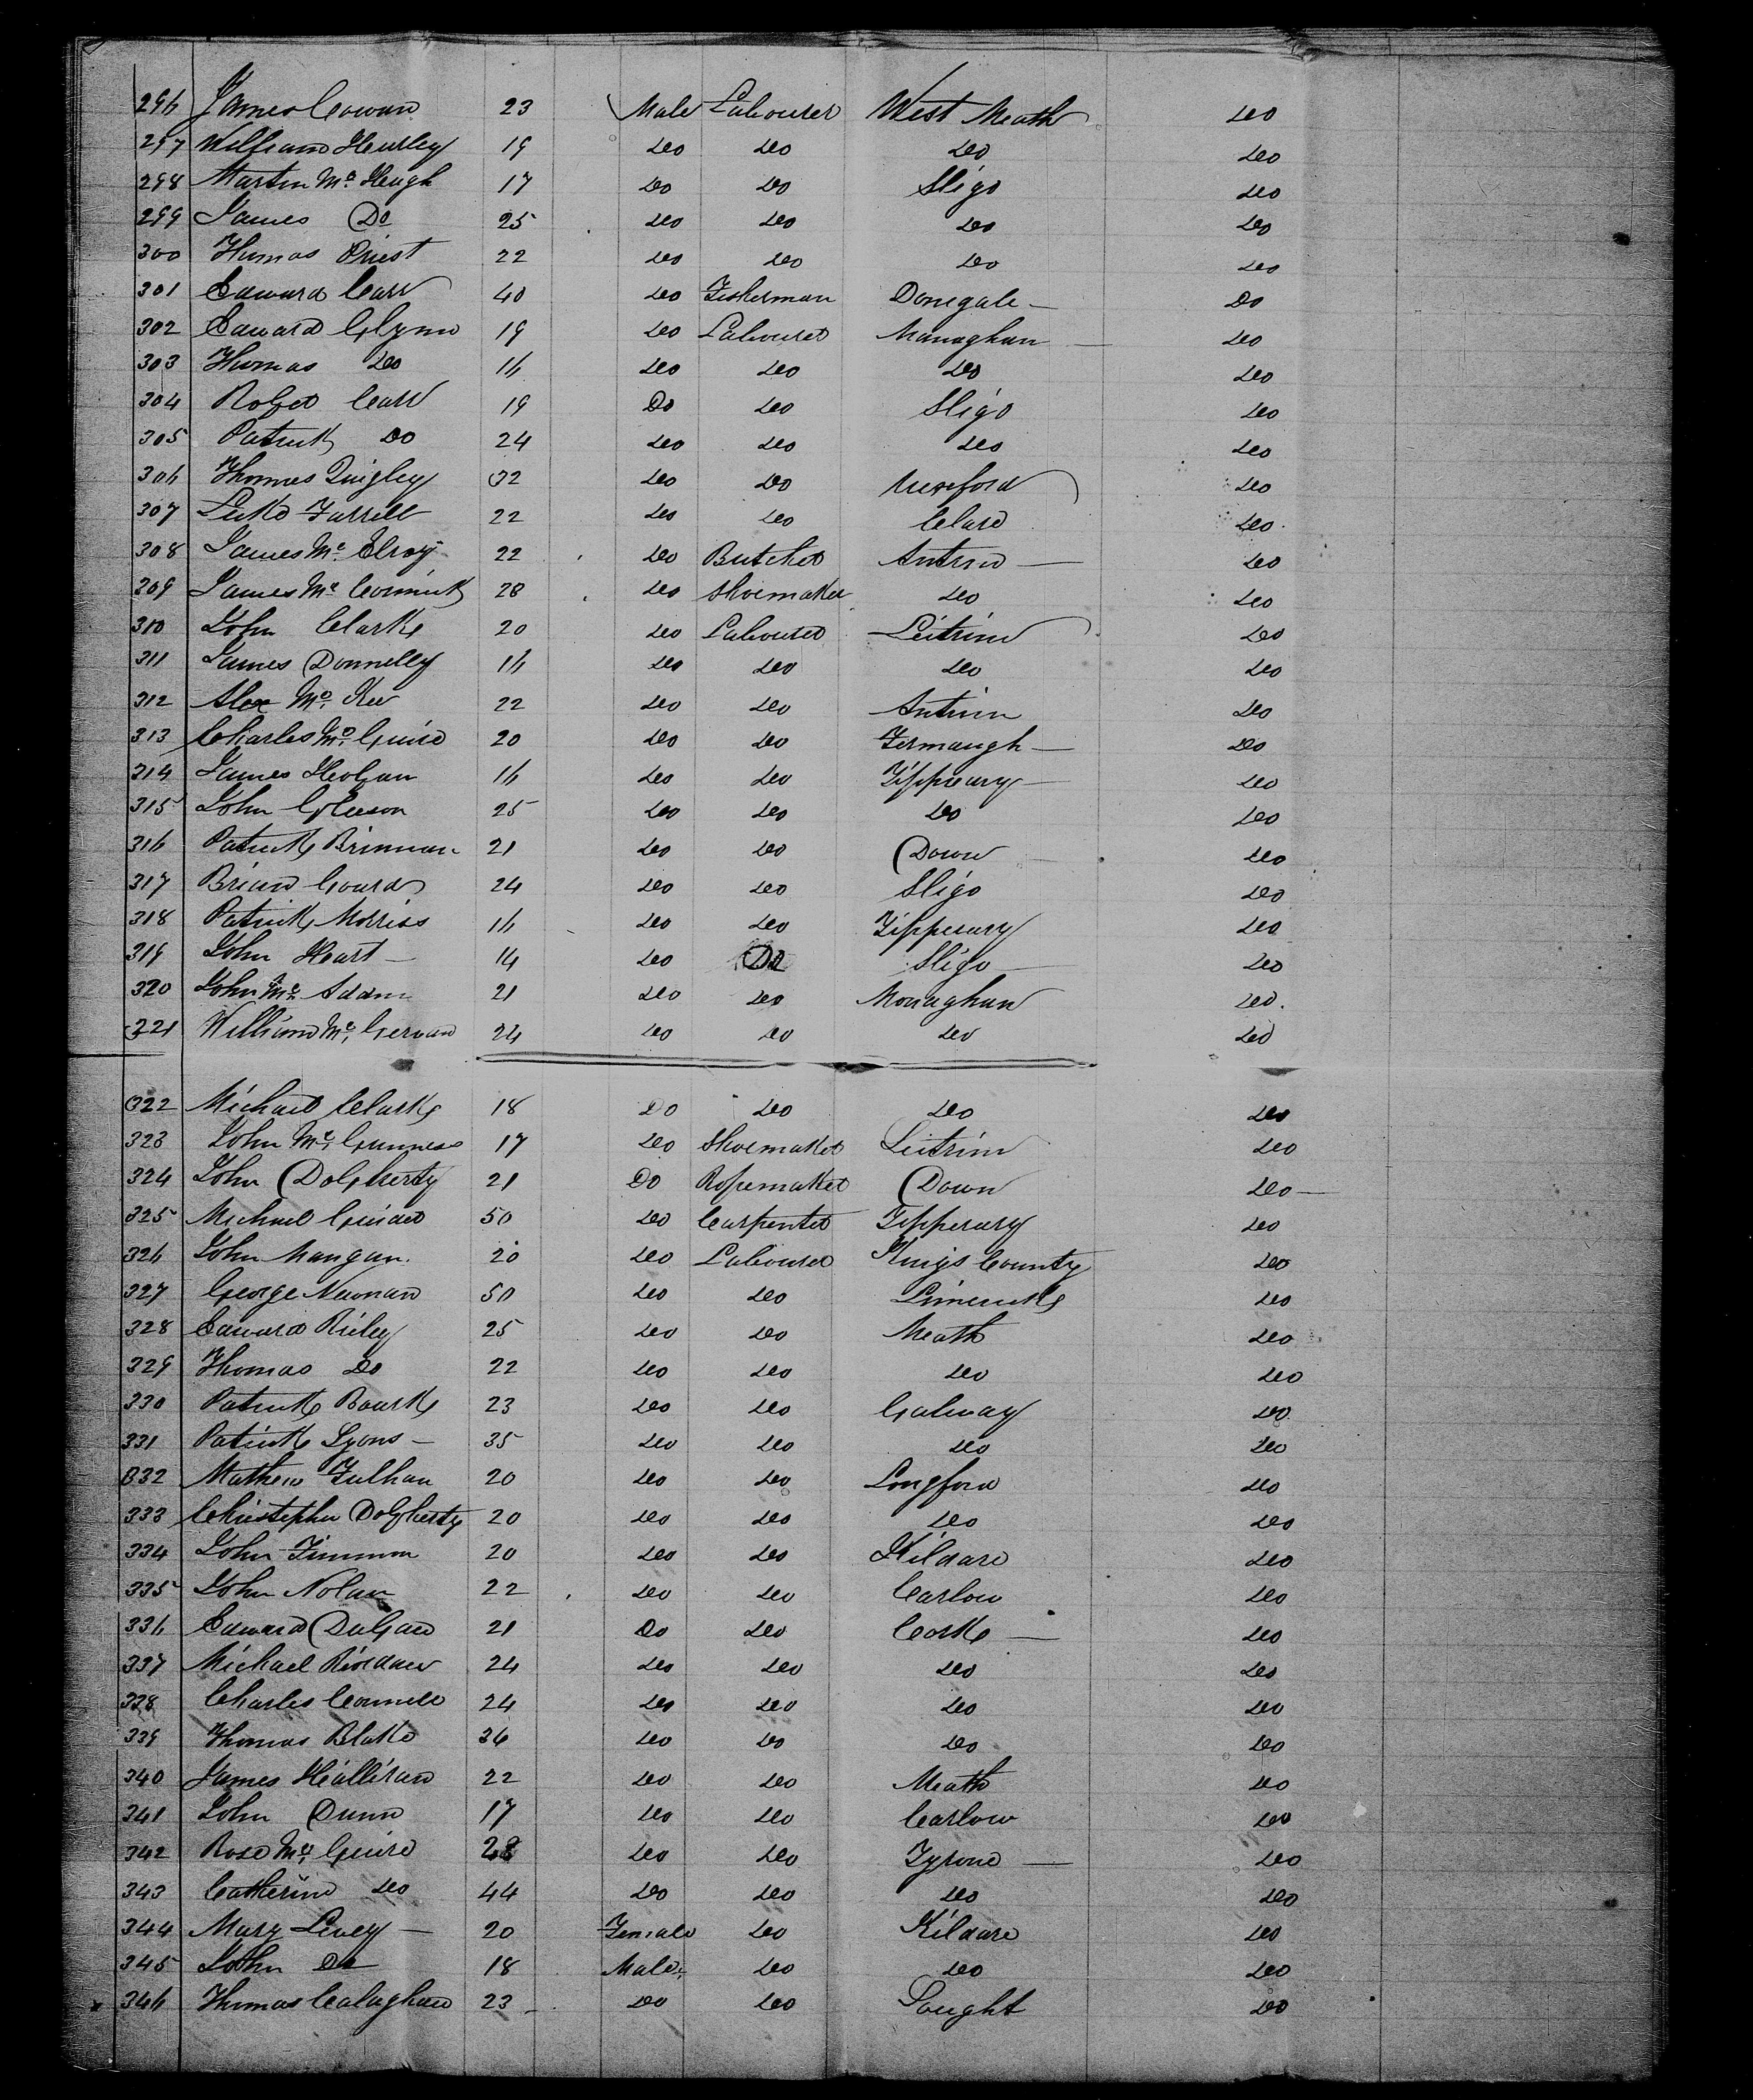 296 James Cowan 23 Male Labourer West Meath Do
297 William Hurley 19 Do Do Do Do
298 Martin Mc Hugh 17 Do Do Sligo Do
299 James Do 25 Do Do Do Do
300 Thomas Priest 22 Do Do Do Do
301 Edward Carr 40 Do Fisherman Donegale Do
302 Edward Glynn 19 Do Labourer Managhan Do
303 Thomas Do 16 Do Do Do Do
304 Robert Carr 19 Do Do Sligo Do
305 Patrick Do 24 Do Do Do Do
306 Thomas Quigley 32 Do Do Wexford Do
307 Luke Farrell 22 Do Do Clare Do
308 James Mc Elroy 22 Do Butcher Antrim Do
309 James Mc Cormick 28 Do Shoemaker Do Do
310 John Clarke 20 Do Labourer Leitrim Do
311 James Donnelly 16 Do Do Do Do
312 Alex Mc Kee 22 Do Do Antrim Do
313 Charles Mc Guire 20 Do Do Fermaugh Do
314 James Hogan 16 Do Do Tippeary Do
315 John Gleeson 25 Do Do Do Do
316 Patrick Brinnan 21 Do Do Down Do
317 Brian 24 Do Do Sligo Do
318 Patrick Morriss 16 Do Do Tipperary Do
319 John Heart 14 Do Do Sligo Do
320 John Mc Adam 21 Do Do Monaghan Do
321 William Mc Gervan 24 Do Do Do Do
322 Michael Clarke 18 Do Do Do Do
323 John Mc Gunness 17 Do Shoemaker Leitrim Do
324 John Dogherty 21 Do Ropemaker Down Do
325 Michael Guider 50 Do Carpenter Tipperary Do
326 John Mangan. 20 Do Labourer Kings County Do
327 George Noonan 50 Do Do Limerick Do
328 Edward Riley 25 Do Do Meath Do
329 Thomas Do 22 Do Do Do Do
330 Patrick Bourke 23 Do Do Galway Do
331 Patrick Lyons 35 Do Do Do Do
332 Mathew Fulhan 20 Do Do Longford Do
333 Christopher Dogherty 20 Do Do Do Do
334 John Timmon 20 Do Do Kildare Do
335 John Nolan 22 Do Do Carlow Do
336 Edward Dugan 21 Do Do Corke Do
337 Michael Riordan 24 Do Do Do Do
338 Charles Connell 24 Do Do Do Do
339 Thomas Blake 36 Do Do Do Do
340 James Halliran 22 Do Do Meath Do
341 John Dunn 17 Do Do Carlow Do
342 Rose Mc Guire 28 Do Do Tyrone Do
343 Catherine Do 44 Do Do Do Do
344 Mary Livey 20 Female Do Kildare Do
345 John Do 18 Male Do Do Do
346 Thomas Calaghan 23 Do Do Lought Do